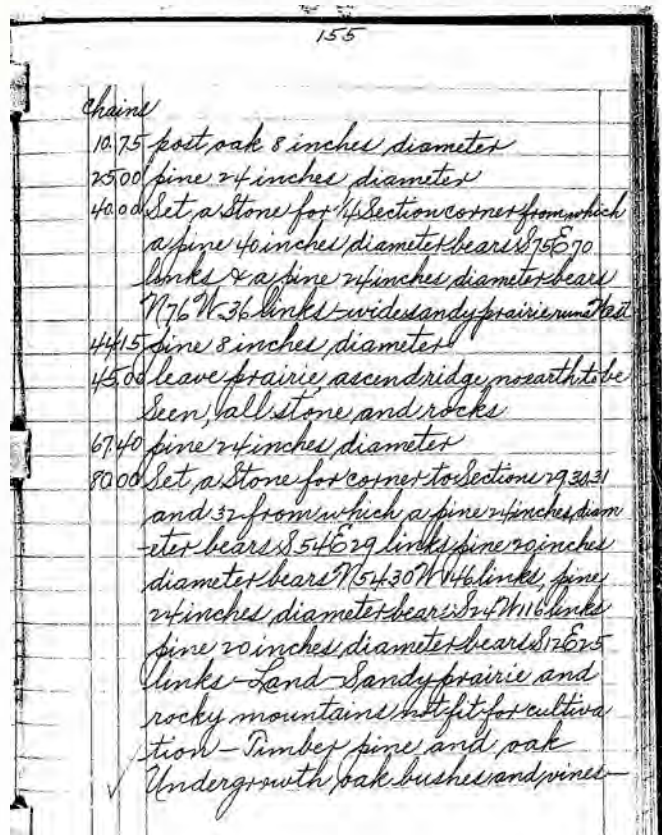 155
Chains
10.75 post oak 8 inches diameter
25.00 pine 24 inches diameter
40.00 Set a Stone for 1/4 Section corner from which
a pine 40 inches diameter bears S75E70
links & a pine 24 inches diameter bears
N76W36 links - wide sandy prairie runs West
44.15 pine 8 inches diameter
45.00 leave prairie, ascend ridge, no earth to be
Seen, all stone and rocks
67.40 pine 24 inches diameter
80.00 Set a Stone for corner to Sections 29 30 31
and 32 from which a pine 24 inches diam
eter bears S54E29 links, pine 20 inches
diameter bears N54.30W146 links, pine
24 inches diameter bears S24W116 links
pine 20 inches diameter bears S12E25
links - Land - Sandy prairie and
rocky mountains not fit for cultiva
tion - Timber pine and oak
Undergrowth oak bushes and vines -